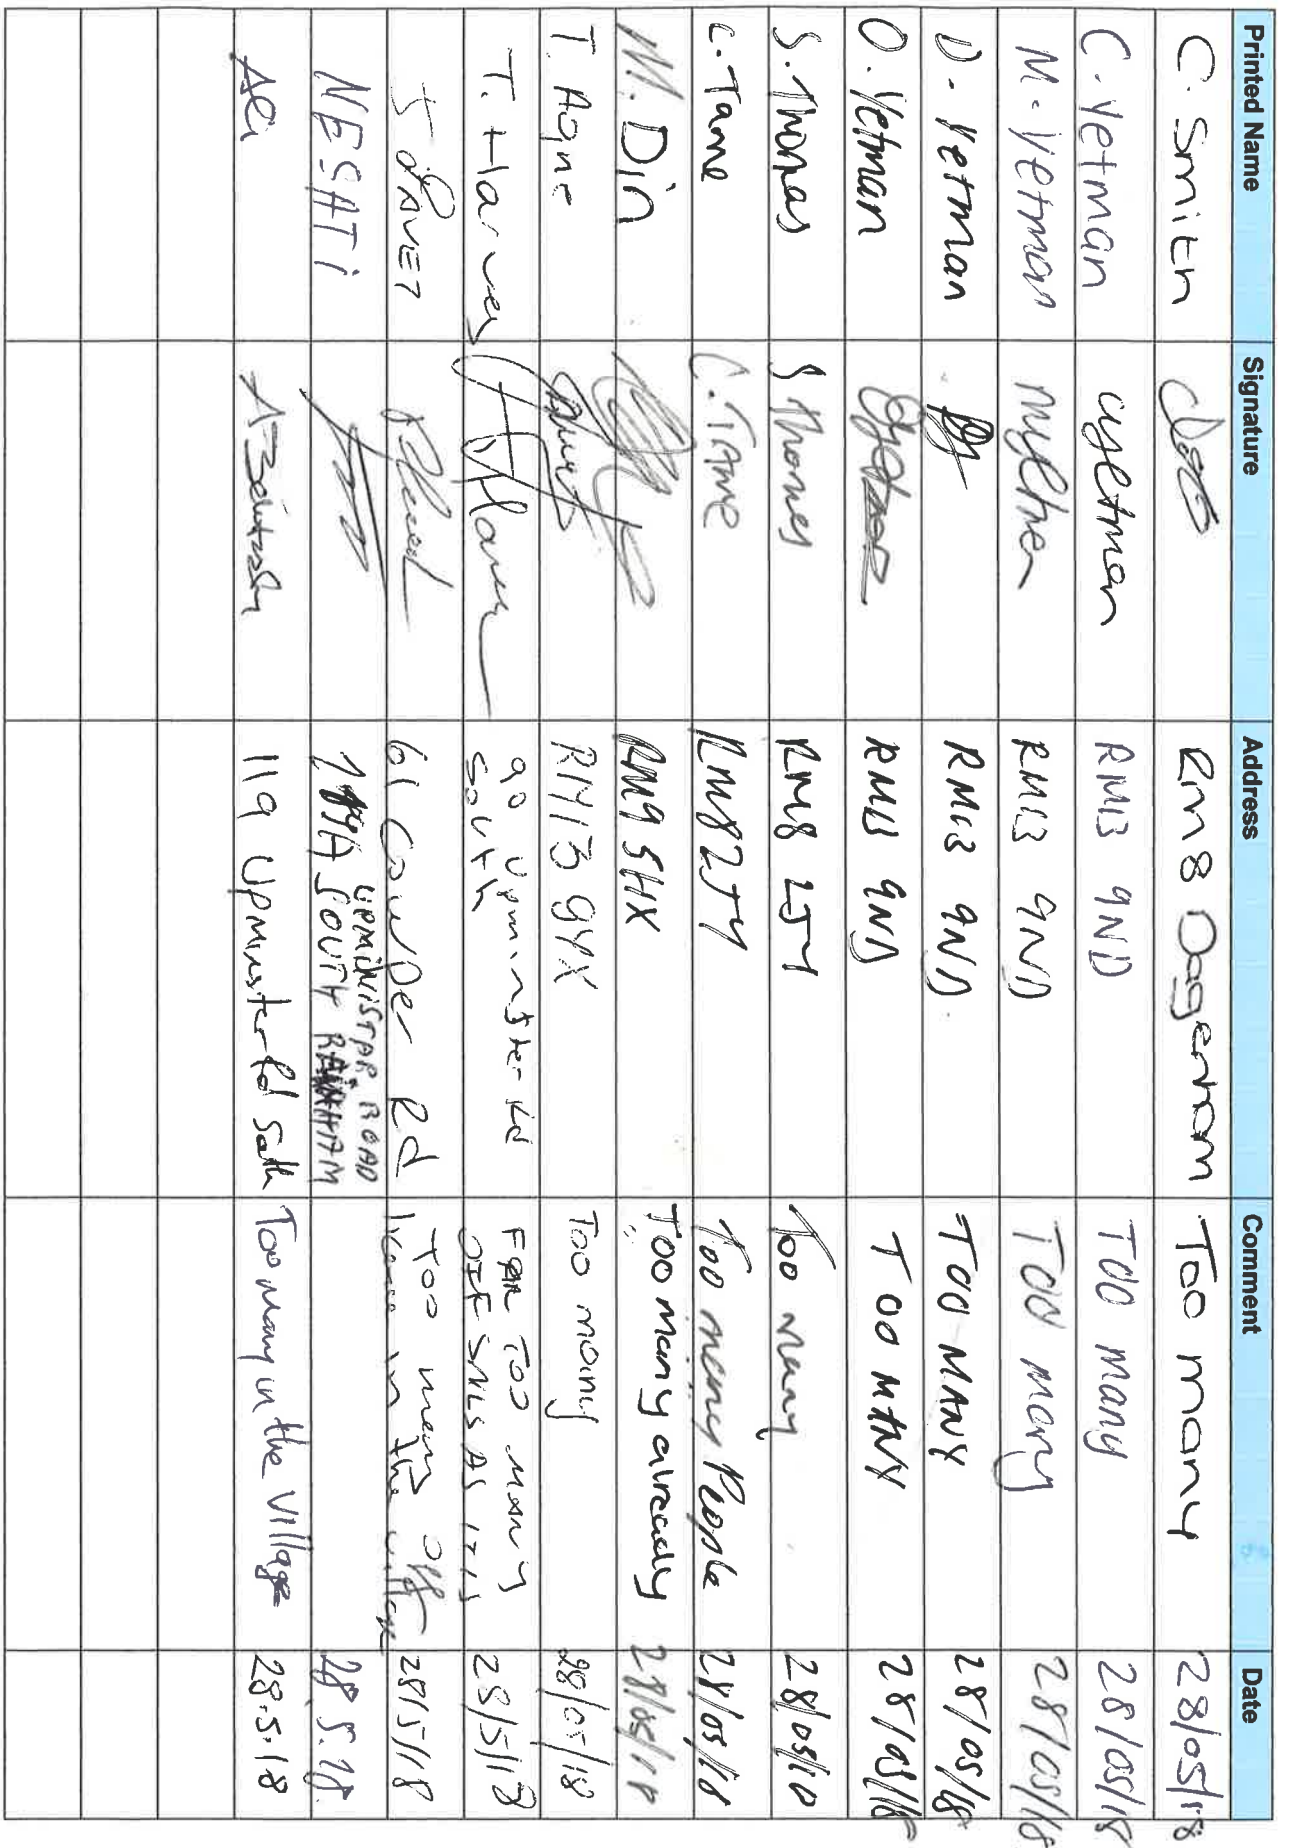 Printed Name Signature Address Comment Date
C. Smith RM8 Dagenham Too many 28/05/18
C. Yetman cyetman RM13 9ND TOO many 28/05/18
M. Yetman RM13 9ND TOO many 28/05/18
D. Yetman RM13 9ND TOO MANY 28/05/18
O. Yetman RM13 9ND TOO MANY 28/05/18
S. Thomas S Thomas RM8 2JY Too many 28/05/18
C. Tame C. TAME RM8 2JY Too many People 28/05/18
M. Din RM9 5HX Too many already 28/05/18
T. Agnc RM13 9YX Too many 28/05/18
T. Harvey 90 Upminster Rd FAR TOO MANY 28/5/18
South OFF SALES AS IT IS
61 Cowper Rd Too many off 28/5/18
licence in the
NESATI UPMINISTAR ROAD 28.5.18.
SOUTH RAINHAM
Ali 119 Upminster Rd South Too many in the Village 28.5.18